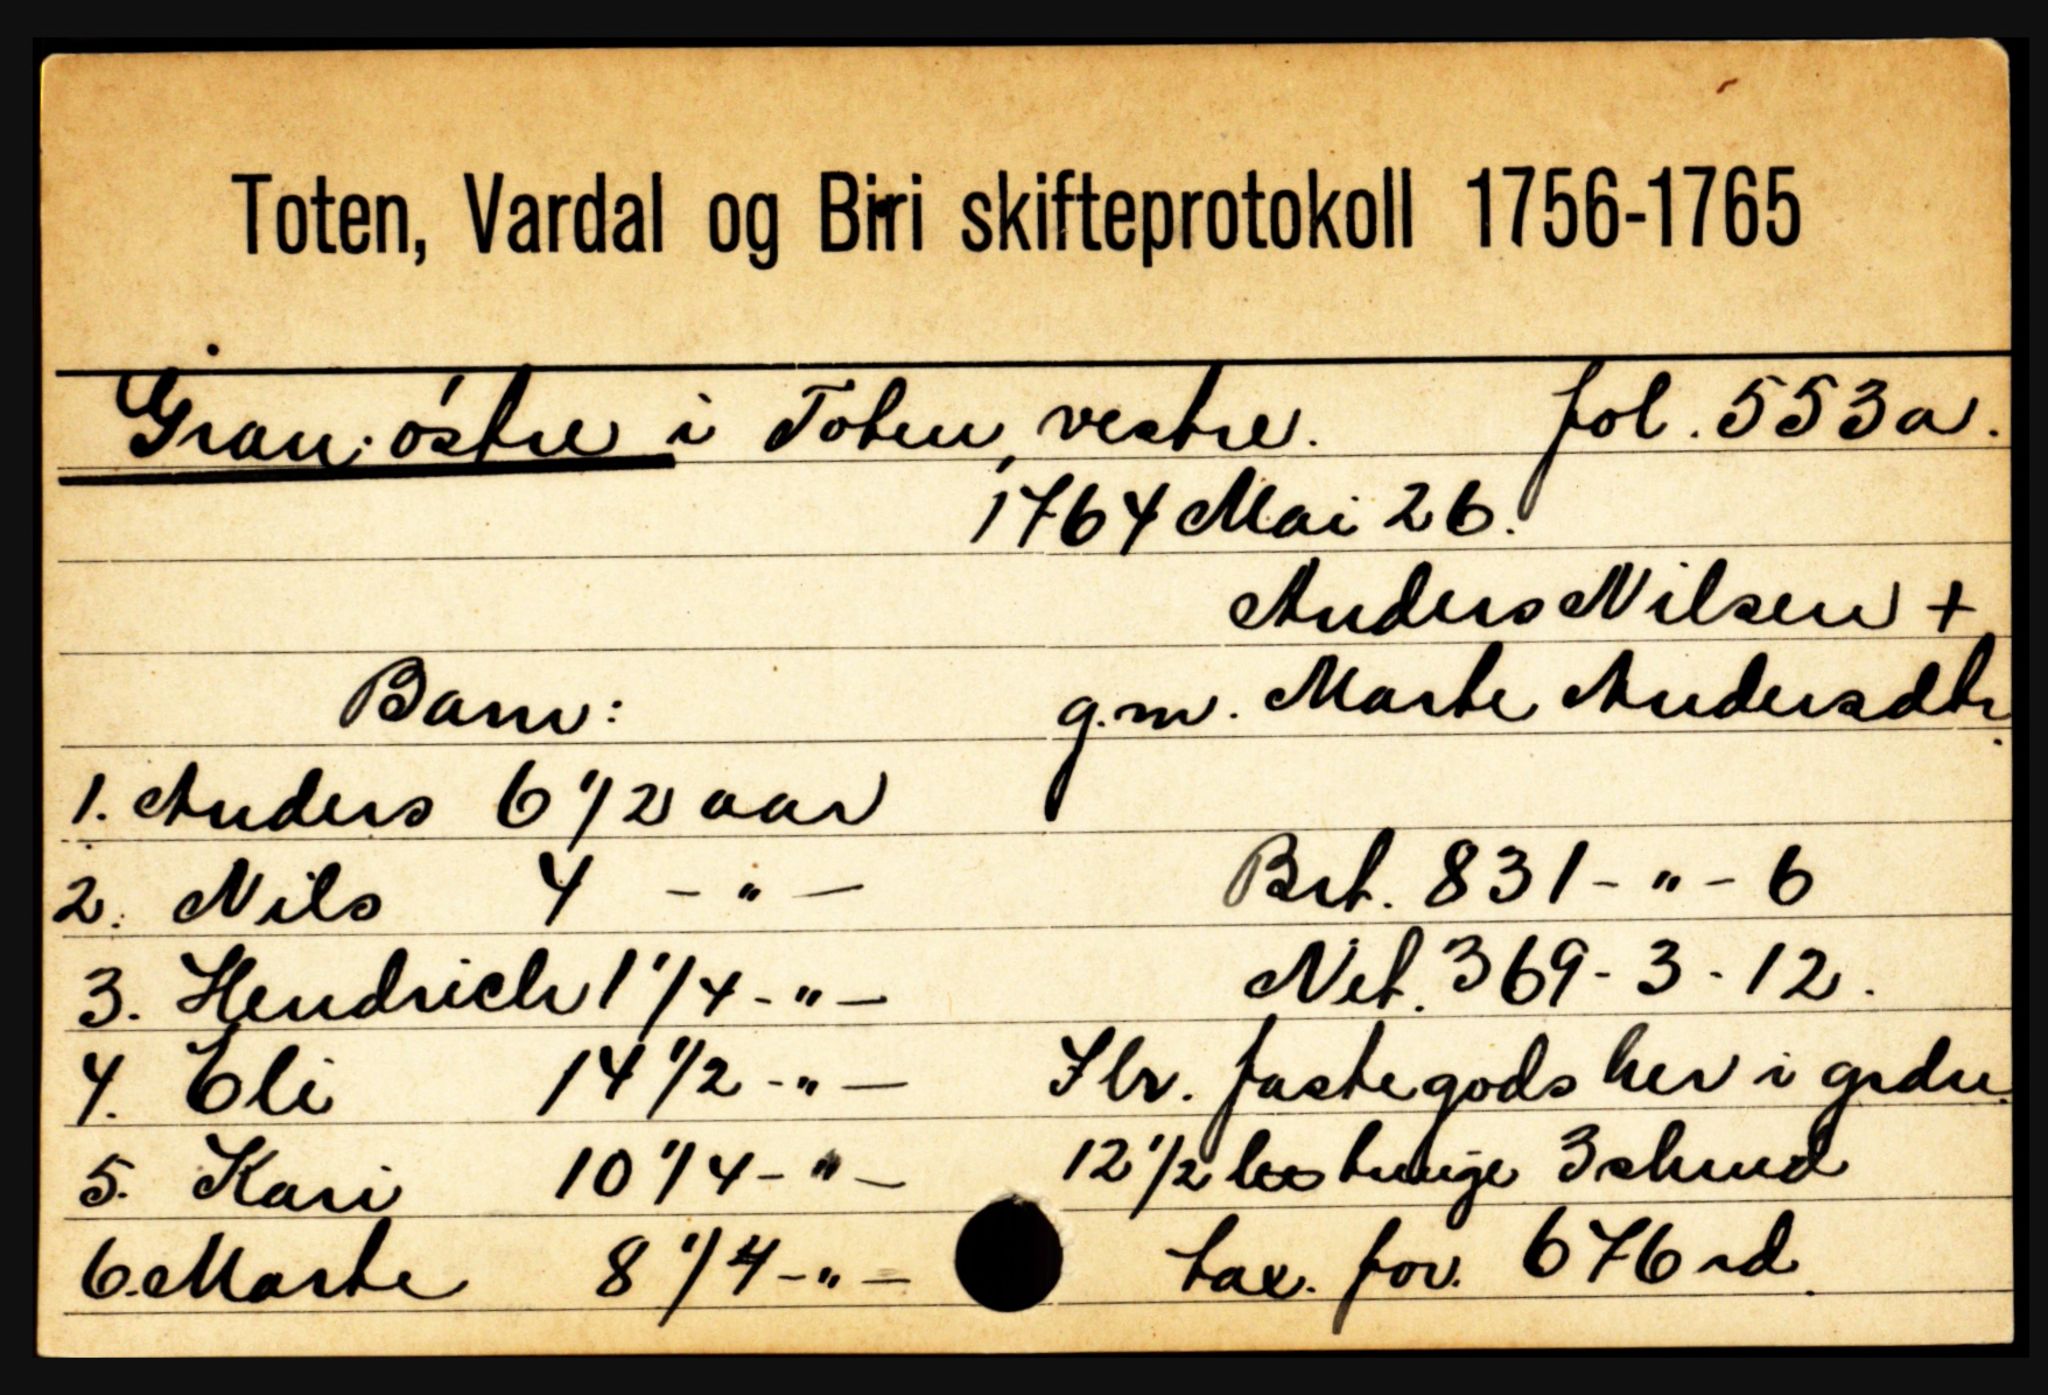 Toten, Vardal og Biri skifteprotokoll 1756-1765
Gran, østre i Toten, vestre. fol. 553a.
1764 Mai 26.
Anders Nilsen +
Barn: g.m. Marte Andersdtr.
1. Anders 6 1/2 aar
2. Nils 4 - " - Brt. 831 - " - 6
3. Hendrich 1 1/4 - " - Net. 369 - 3 - 12.
4. Eli 14 1/2 - " - Iflr. fastegods her i grdn.
5. Kari 10 1/4 - " - 12 1/2 tunge 3 skind
6. Marte 8 1/4 - " - tax. for. 676 rd.